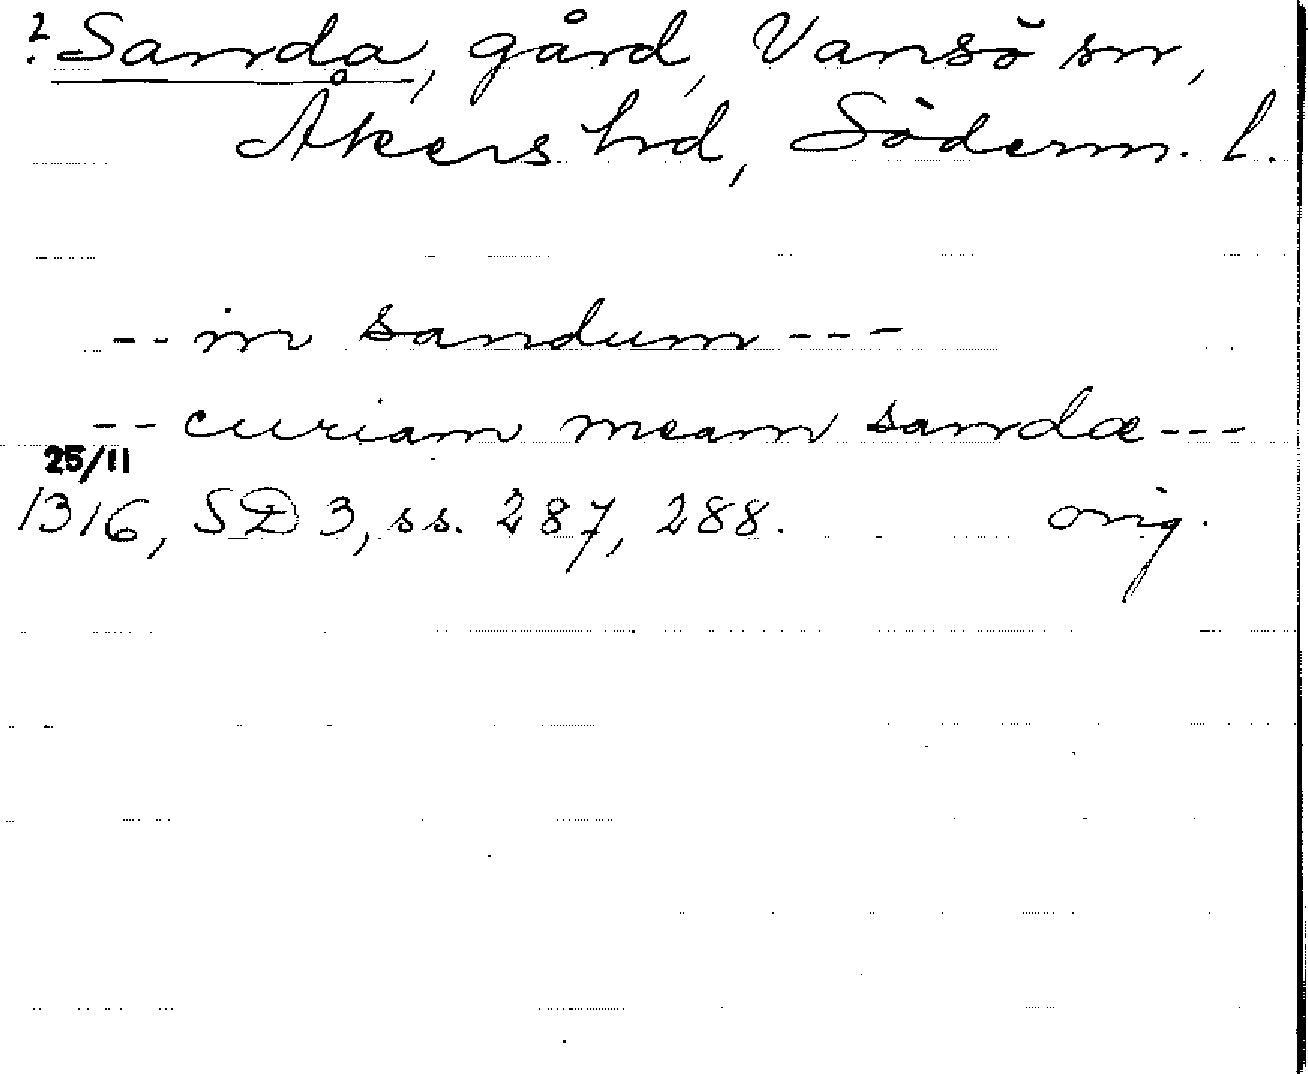 ? Sanda, gård, Vansö sn,
Åkers hd, Söderm. l.
-- in sandum ---
-- curiam meam sandæ ---
25/11
1316, SD 3, ss. 287, 288. orig.